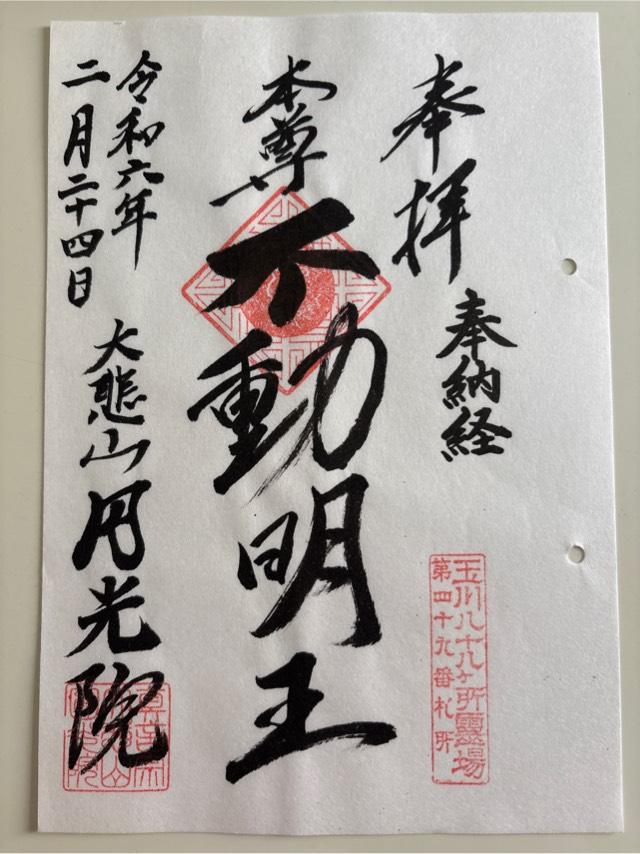 奉拝
奉納経
玉川八十八ケ所霊場
第四十九番札所
本尊
不動明王
令和六年
二月二十四日
大悲山
円光院